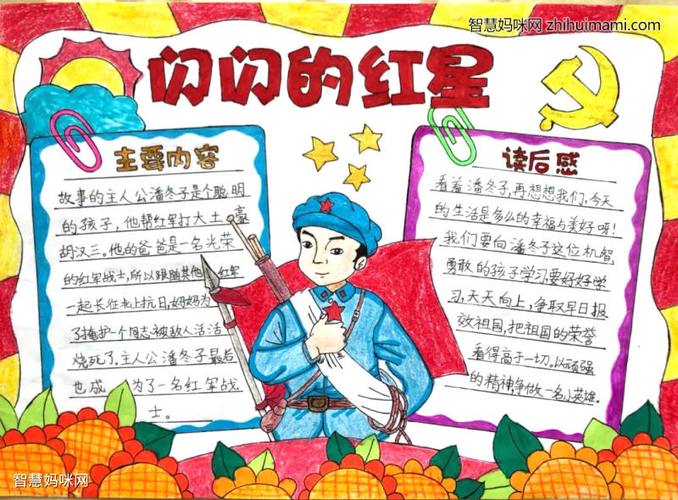 智慧妈咪网 zhihuimami.com
闪闪的红星
主要内容
故事的主人公潘冬子是个聪明
的孩子，他帮红军打大土豪
胡汉三。他的爸爸是一名光荣
的红军战士，所以跟随其他红军
一起长征北上抗日，妈妈为
了掩护一个同志被敌人活活
烧死了，主人公潘冬子最后
也成为了一名红军战
士。
读后感
看着潘冬子，再想想我们，今天
的生活是多么的幸福与美好呀！
我们要向潘冬子这位机智、
勇敢的孩子学习要好好学
习，天天向上，争取早日报
效祖国，把祖国的荣誉
看得高于一切。以顽强
的精神，争做一名小英雄．
智慧妈咪网